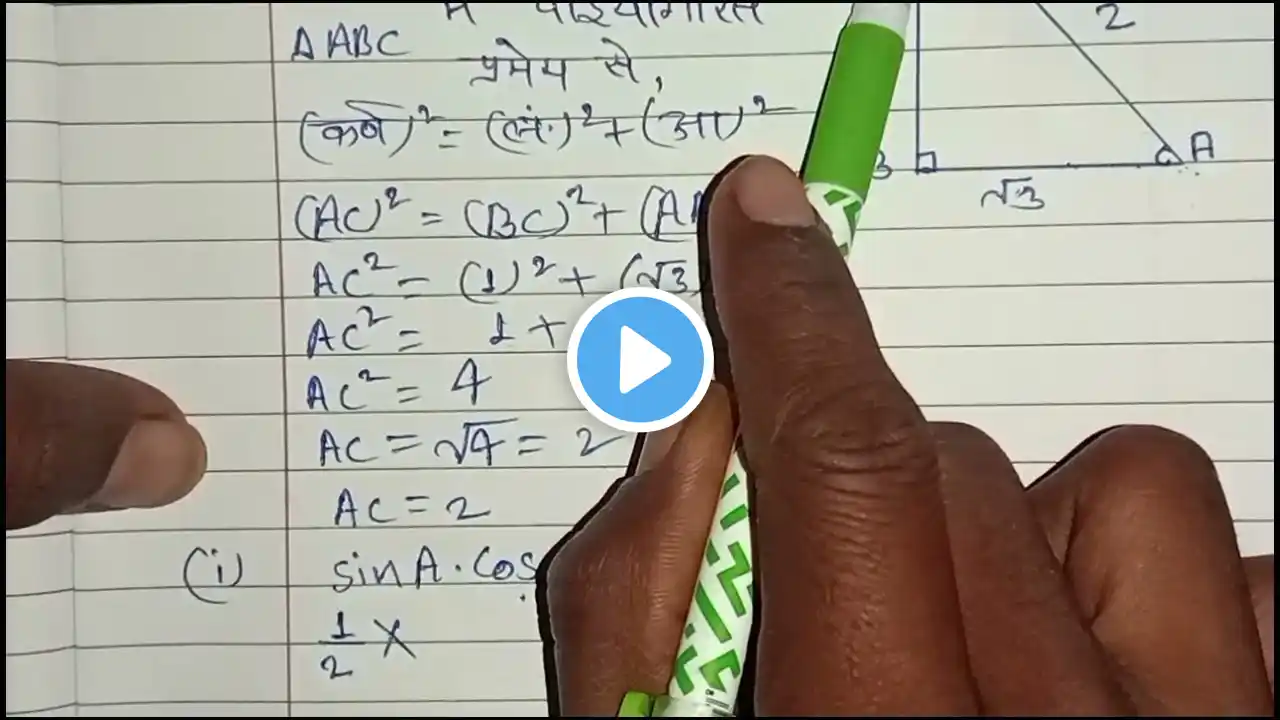 2
△ABC में पाइथागोरस
प्रमेय से,
(कर्ण)² = (लं.)² + (आ)²
A
√3
(AC)² = (BC)² + (A
AC² = (1)² + (√3
AC² = 1 +
AC² = 4
AC = √4 = 2
AC = 2
(i) sinA · Cos
1/2 ×